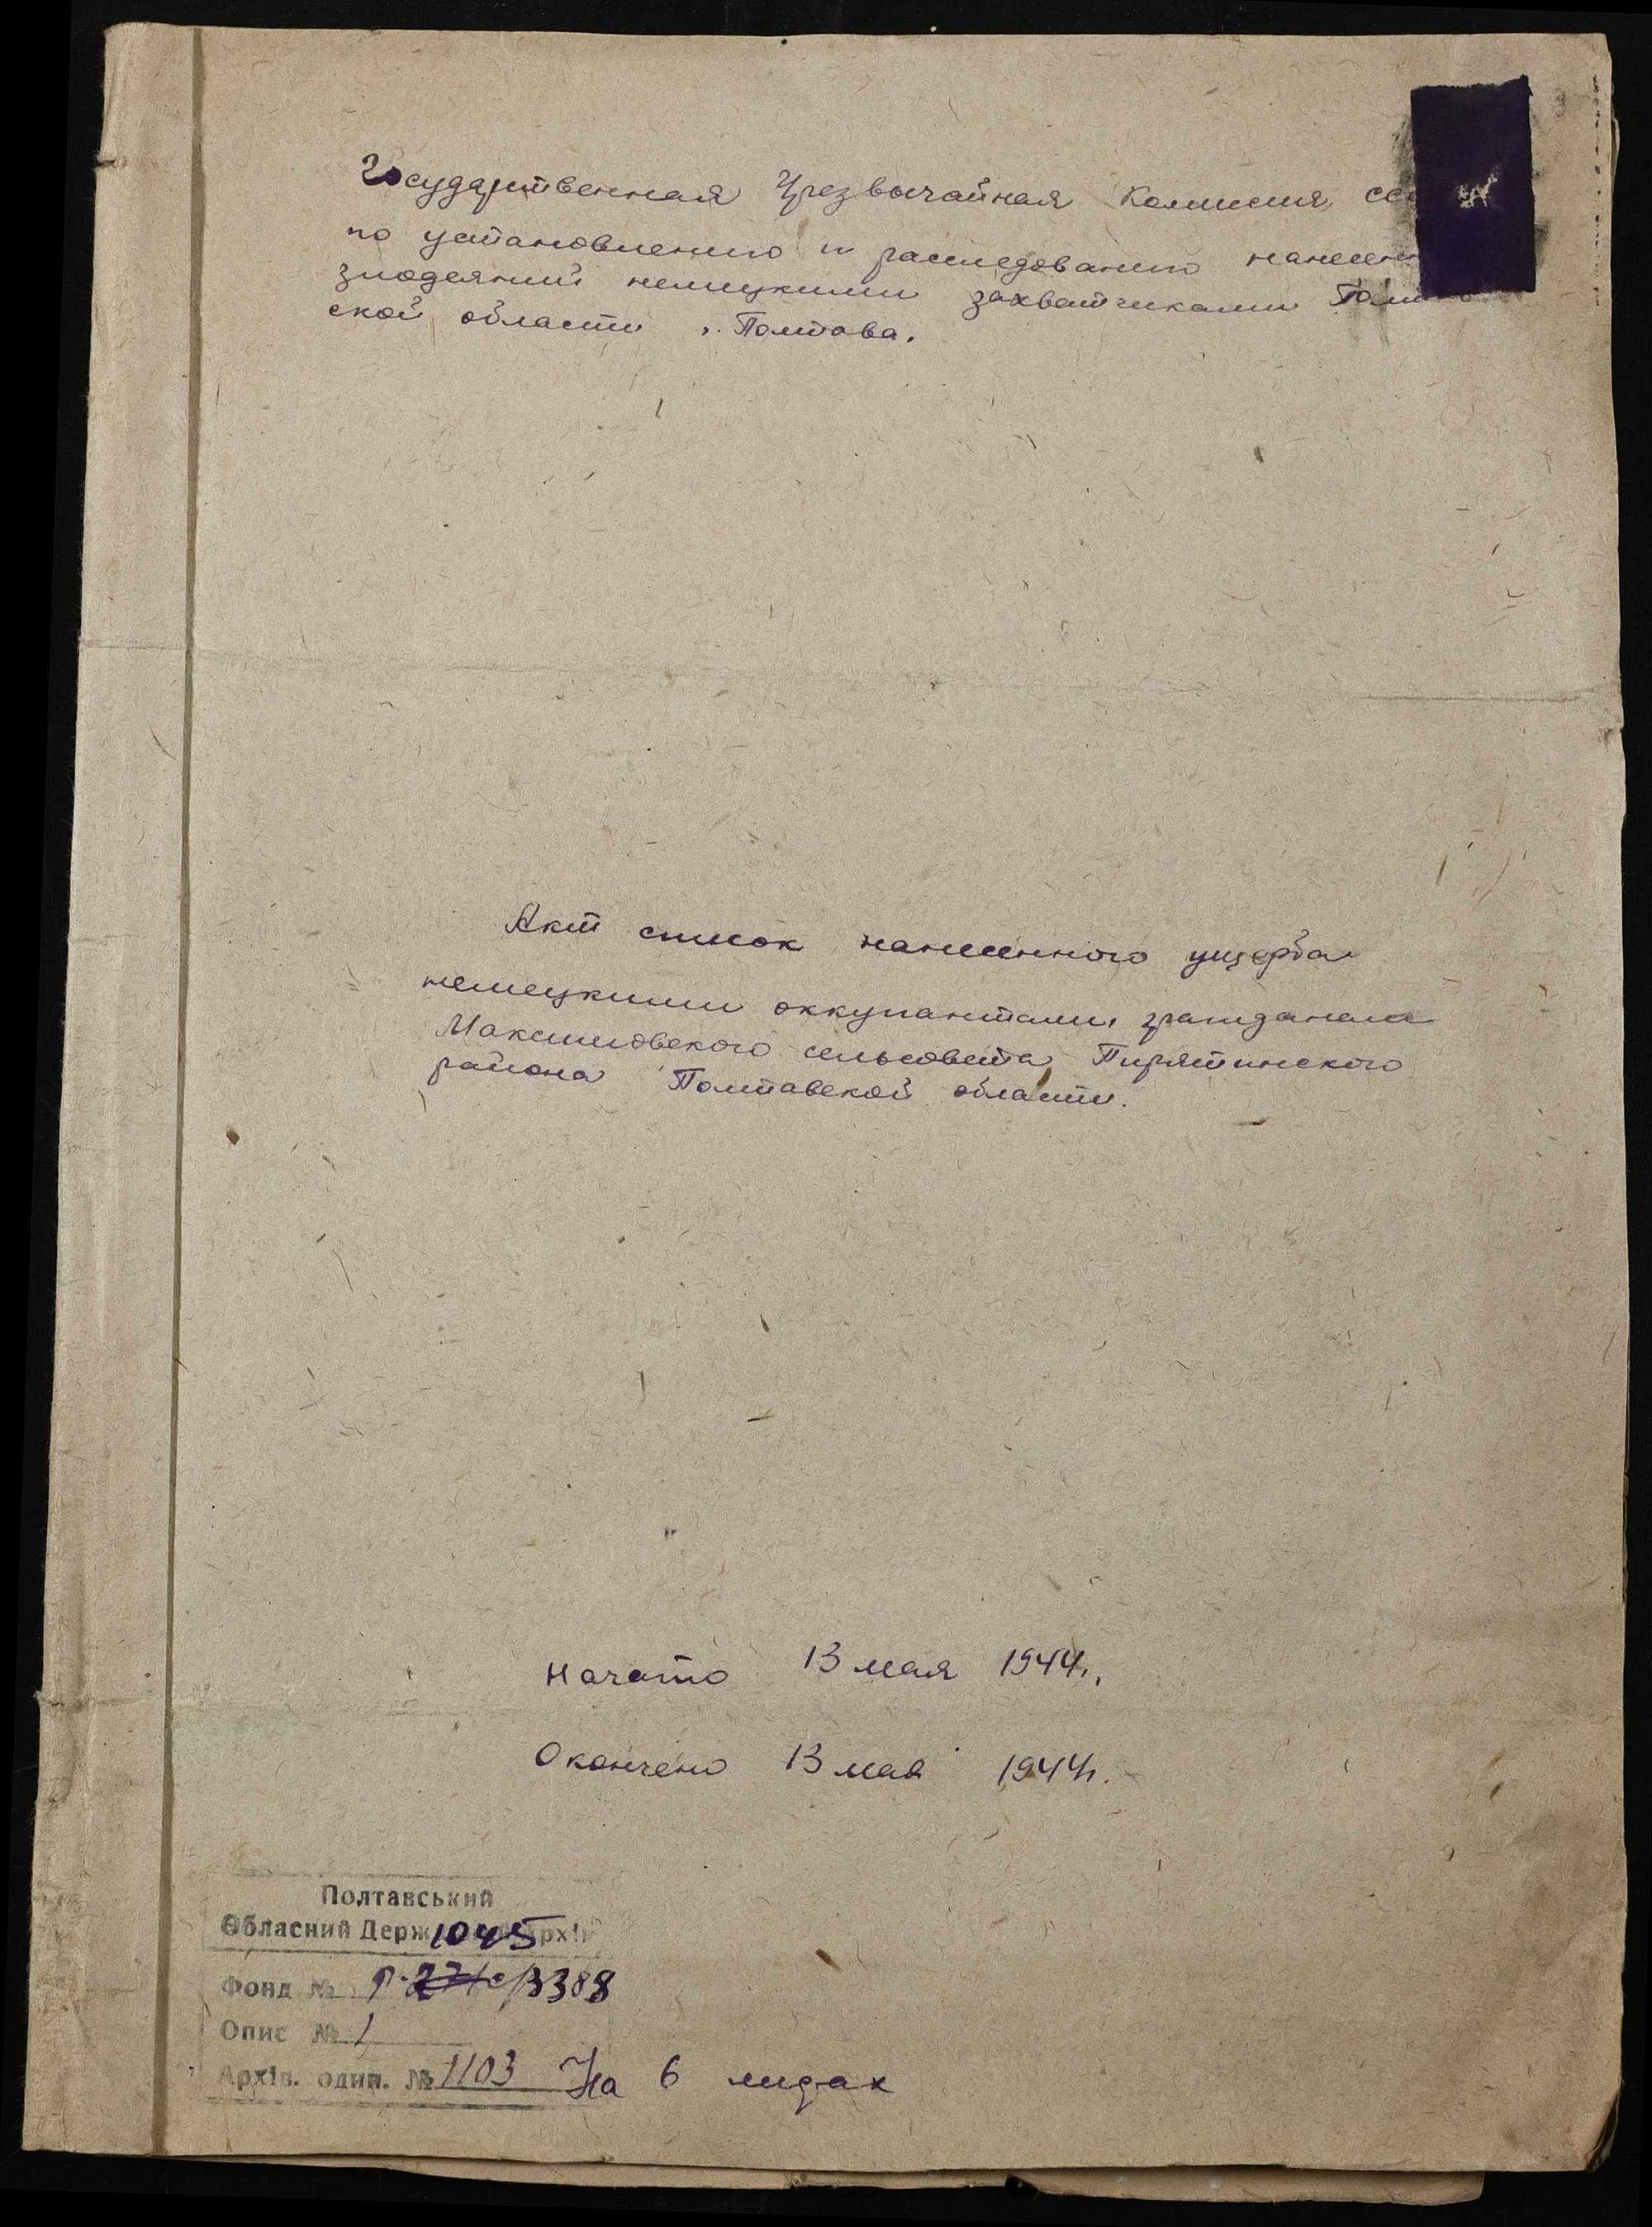 Государственная Чрезвычайная Комиссия ссс
по установлению и расследованию нанесен
злодеяний немецкими захватчиками Полт
ской области г. Полтава.
Акт список нанесенного ущерба
немецкими оккупантами гражданам
Максимовского сельсовета Пирятинского
района Полтавской области.
Начато 13 мая 1944г.
Окончено 13 мая 1944г.
Полтавський
Обласний Держ 1045 рхів
Фонд № Р- 3388
Опис № 1
Архів. один. № 1103 На 6 лидах